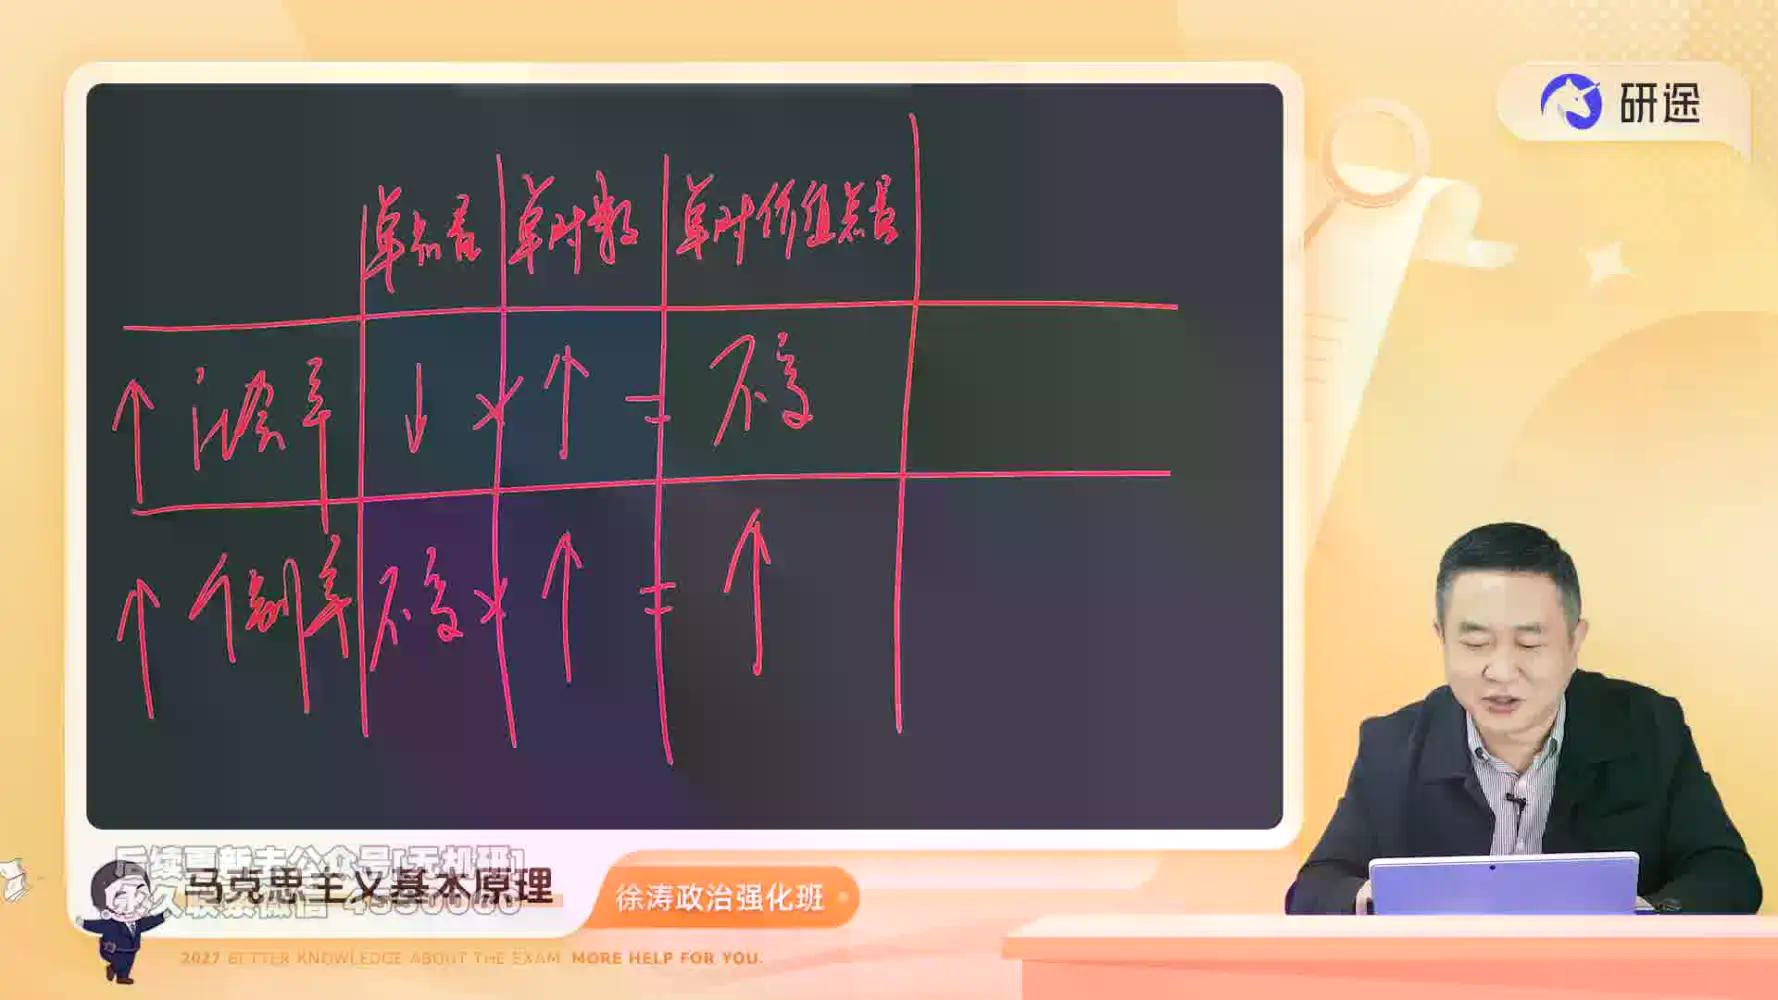 研途
单价值 单时数 单时价值总量
↑ 社会率 ↓ × ↑ = 不变
↑ 个别率 不变 × ↑ = ↑
后续更新去公众号[无机研]
马克思主义基本原理
徐涛政治强化班
2027 BETTER KNOWLEDGE ABOUT THE EXAM MORE HELP FOR YOU.